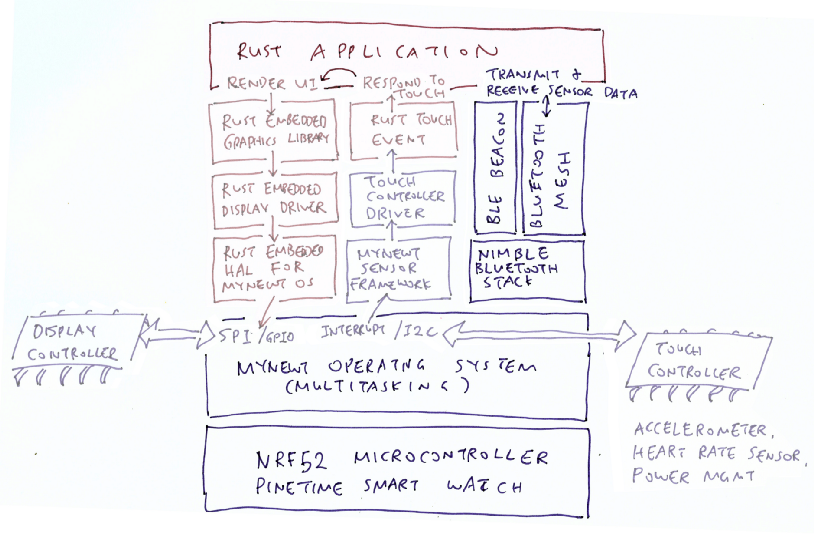 RUST APPLICATION
RENDER UI
RESPOND TO
TOUCH
TRANSMIT &
RECEIVE SENSOR DATA
RUST EMBEDDED
GRAPHICS LIBRARY
RUST TOUCH
EVENT
BLE BEACON
BLUETOOTH
MESH
RUST EMBEDDED
DISPLAY DRIVER
TOUCH
CONTROLLER
DRIVER
RUST EMBEDDED
HAL FOR
MYNEWT OS
MYNEWT
SENSOR
FRAMEWORK
NIMBLE
BLUETOOTH
STACK
DISPLAY
CONTROLLER
SPI/GPIO
INTERRUPT/I2C
TOUCH
CONTROLLER
MYNEWT OPERATING SYSTEM
(MULTITASKING)
ACCELEROMETER,
HEART RATE SENSOR,
POWER MGMT
NRF52 MICROCONTROLLER
PINETIME SMART WATCH